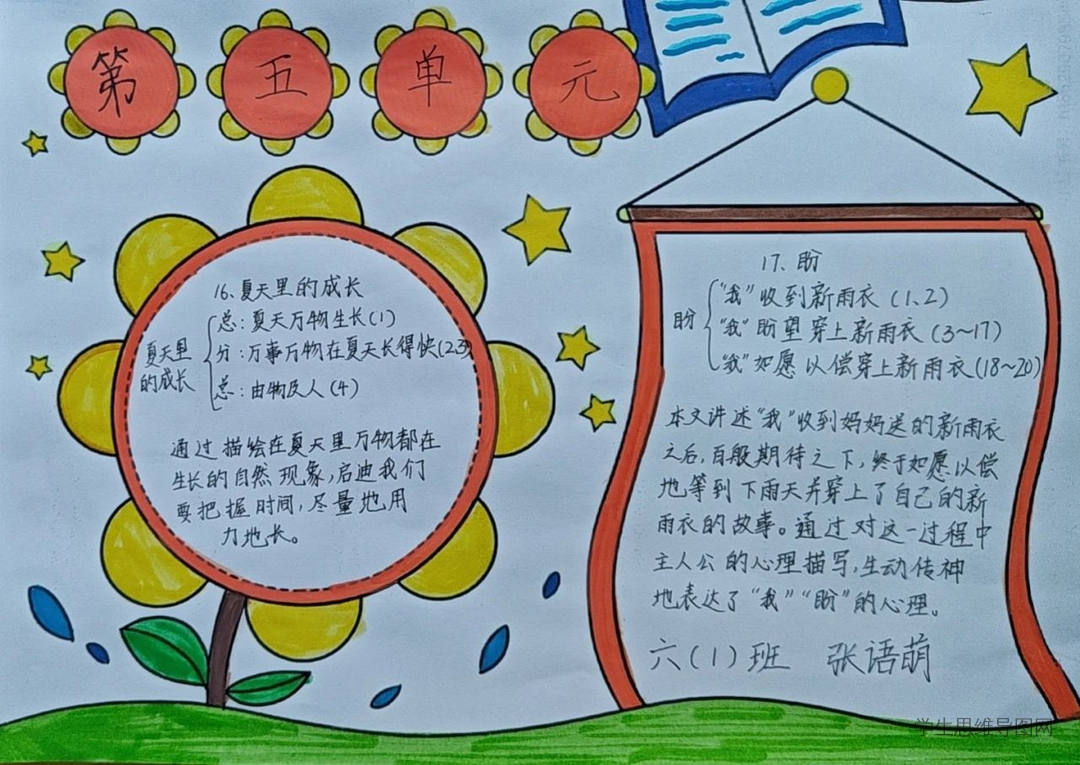 第五单元
16、夏天里的成长
夏天里
的成长
总：夏天万物生长(1)
分：万事万物在夏天长得快(2.3)
总：由物及人(4)
通过描绘在夏天里万物都在
生长的自然现象，启迪我们
要把握时间，尽量地用
力地长。
17、盼
盼
“我”收到新雨衣(1、2)
“我”盼望穿上新雨衣(3~17)
“我”如愿以偿穿上新雨衣(18~20)
本文讲述“我”收到妈妈送的新雨衣
之后，百般期待之下，终于如愿以偿
地等到下雨天并穿上了自己的新
雨衣的故事。通过对这一过程中
主人公的心理描写，生动传神
地表达了“我”“盼”的心理。
六(1)班 张语萌
学生思维导图网